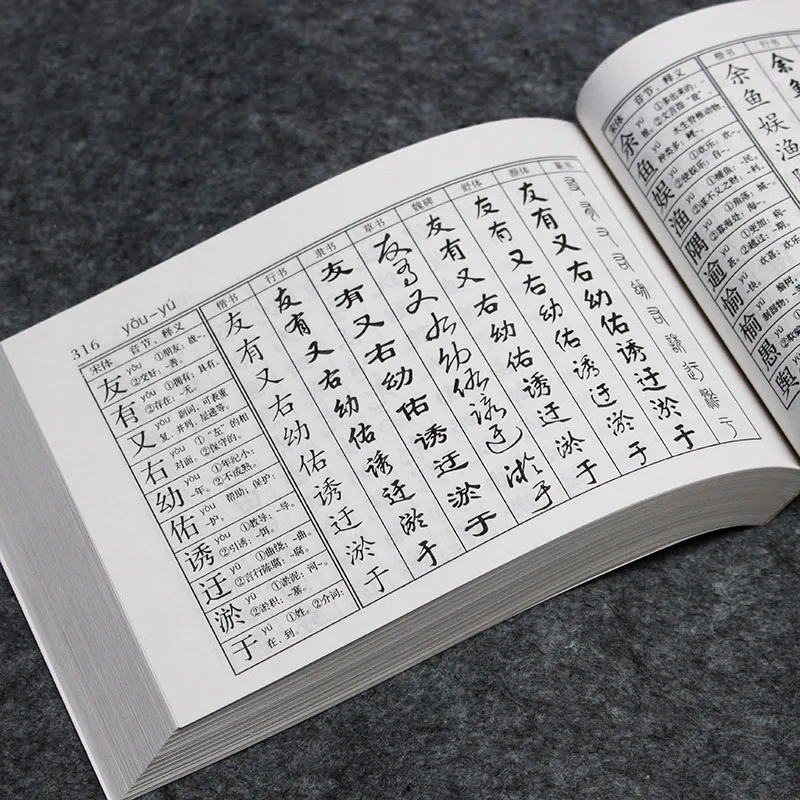 316 yǒu—yú
宋体 音节、释义 楷书 行书 隶书 草书 魏碑 舒体 颜体 篆书
友 yǒu ①朋友：战~。 友 友 友 友 友 友 友
②交好：~善。
有 yǒu ①拥有：具有。 有 有 有 有 有 有 有
②存在：~无。
又 yòu 副词，可表重 又 又 又 又 又 又 又
复、并列、层递等。
右 yòu ①“左”的相 右 右 右 右 右 右 右
对面。②保守的。
幼 yòu ①年纪小： 幼 幼 幼 幼 幼 幼 幼
~年。②不成熟。
佑 yòu 帮助；保护： 佑 佑 佑 佑 佑 佑 佑
~护。
诱 yòu ①教导：~导。 诱 诱 诱 诱 诱 诱 诱
②引诱：~饵。
迂 yū ①曲绕：~曲。 迂 迂 迂 迂 迂 迂 迂
②言行陈腐：~腐。
淤 yū ①淤泥：河~。 淤 淤 淤 淤 淤 淤 淤
②淤积：~塞
于 yú ①姓。②介词： 于 于 于 于 于 于 于
在，到。
宋体 音节、释义 楷书 行书
余 yú ①多出来的：~ 余 余
鱼 yú 水生脊椎动物， 鱼 鱼
种类多：鲤~。
娱 yú ①欢乐：欢~。 娱
②使娱乐：自~。
渔 yú ①捕鱼：~民。 渔
②谋不义之财：~利。
隅 yú ①角落：城~。
②靠边处：海~。
逾 yú ①更加；
②越过：~期。
愉 yú 欢喜，欢乐
~快。
榆 yú 榆树，
愚 yú
舆 yú